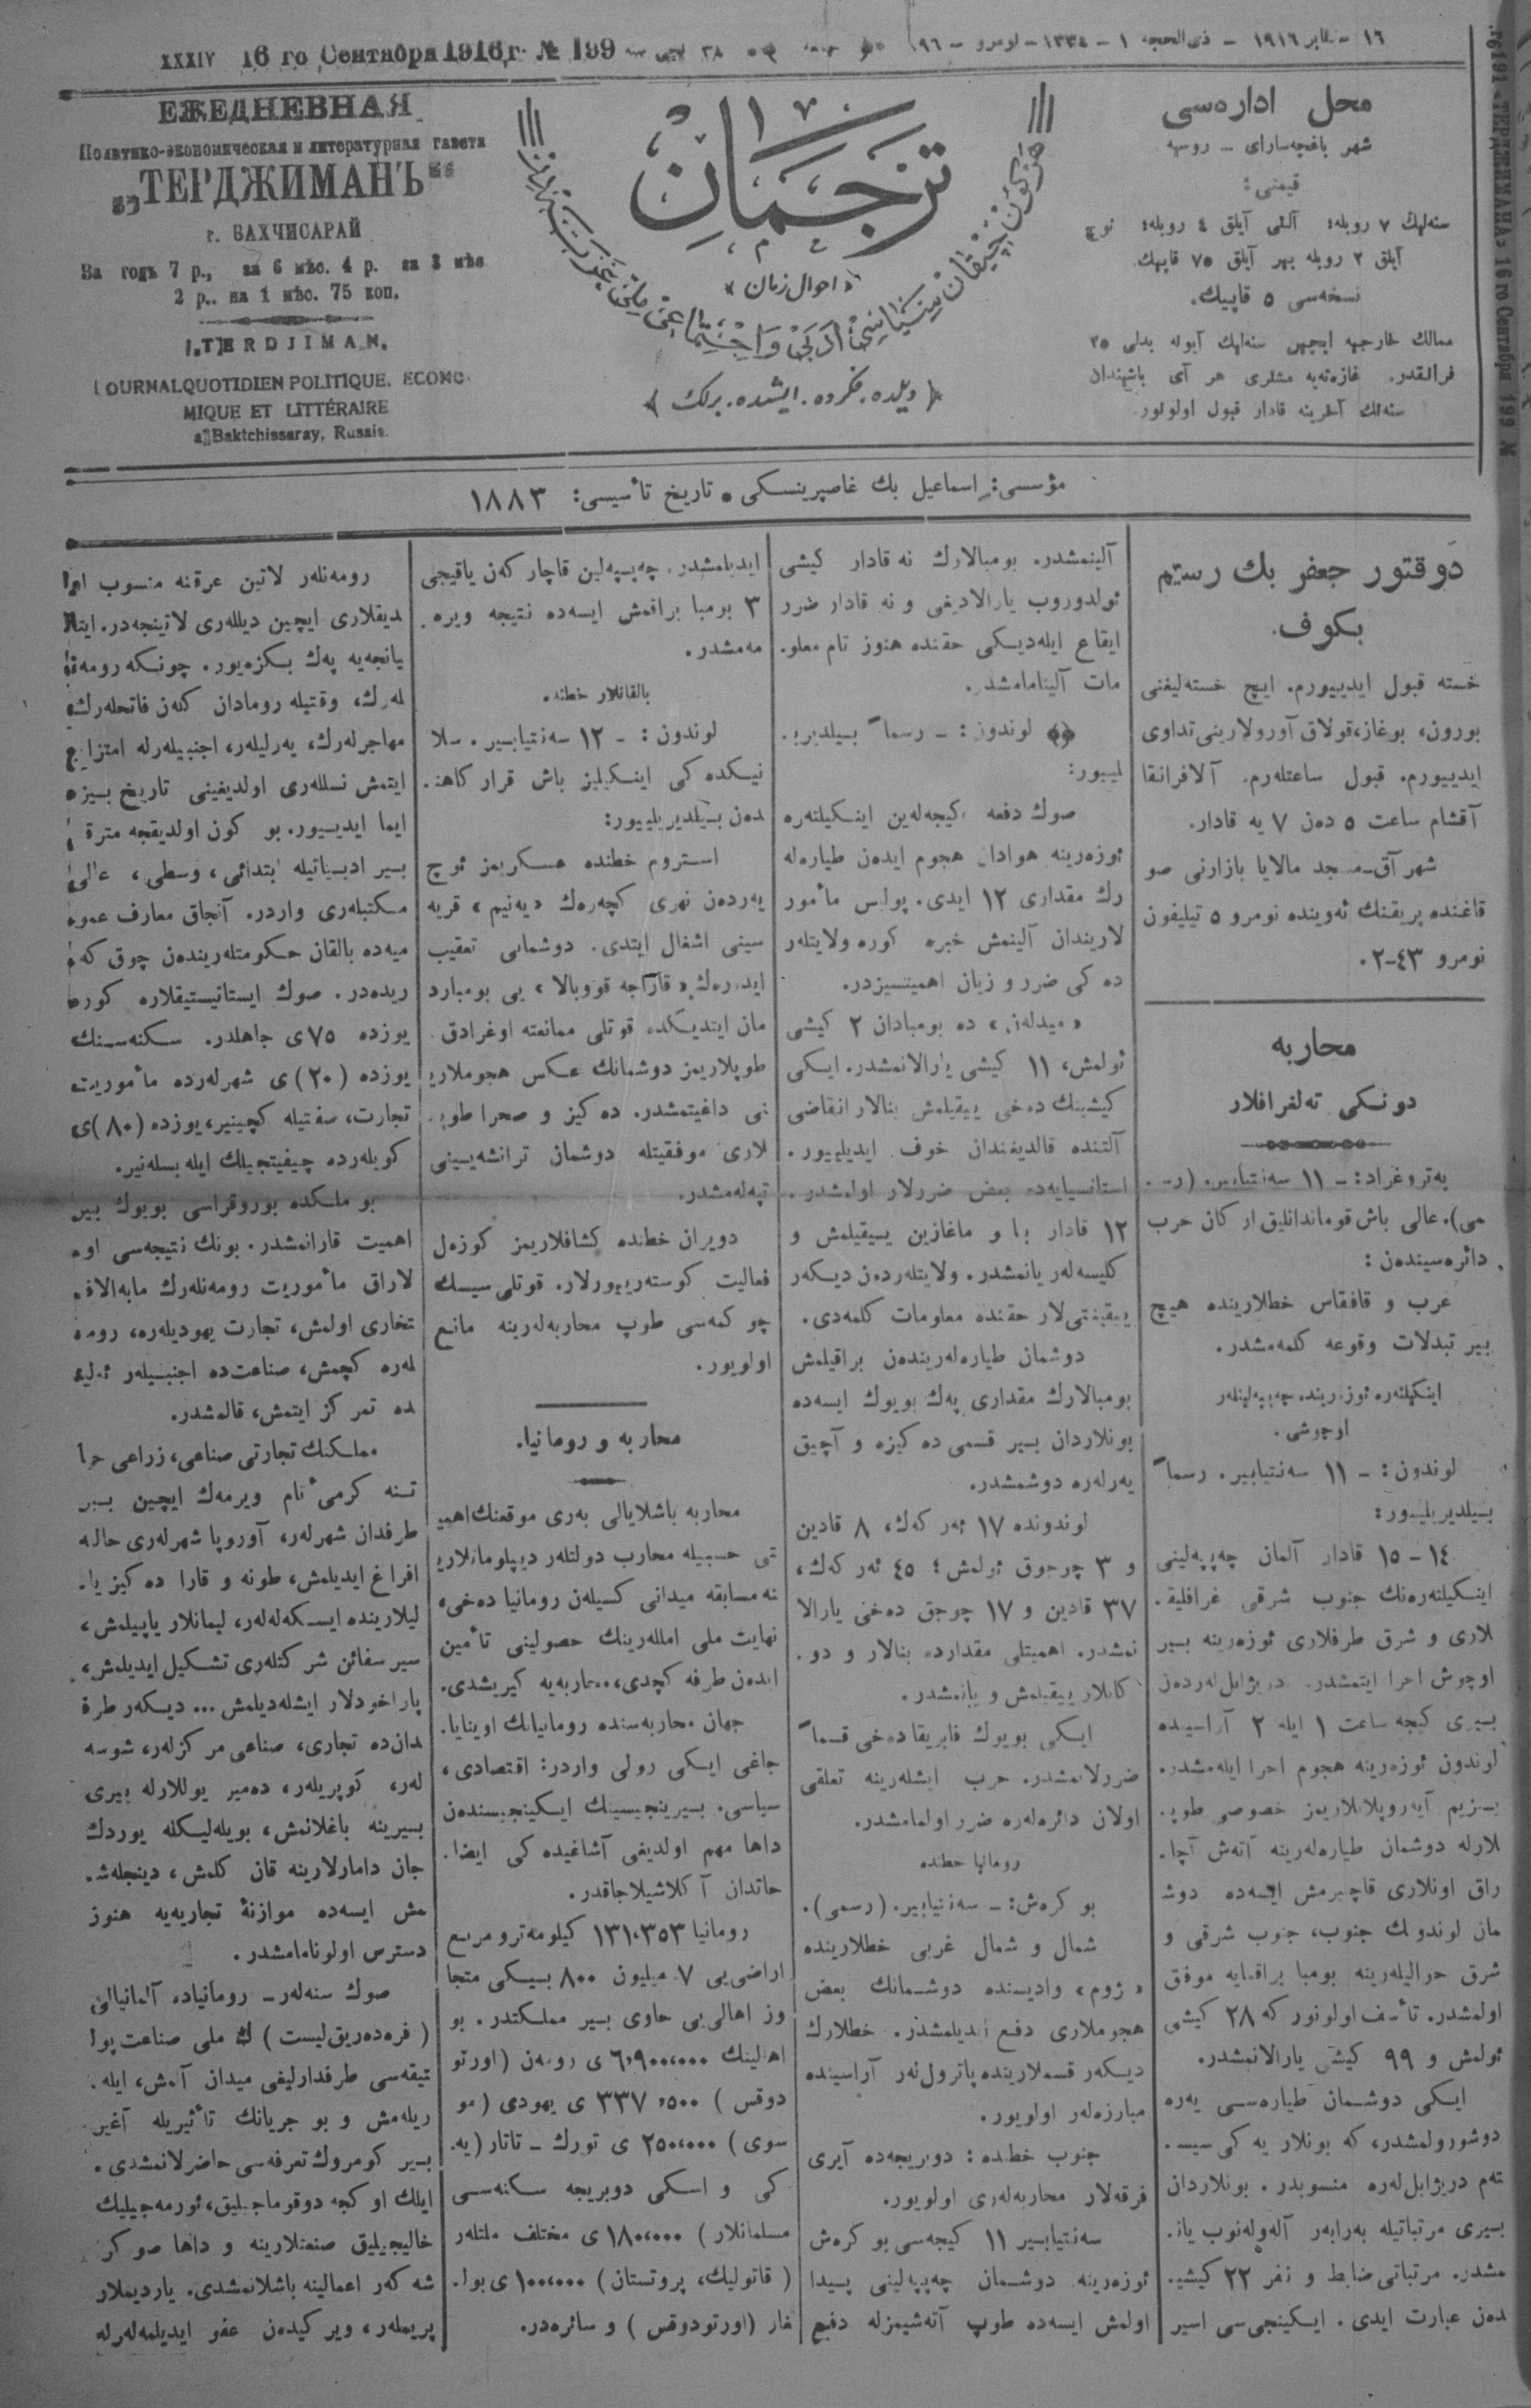 XXXIV 16 го Сентября 1916 г. № 199
١٦ سنتابر ١٩١٦ – ذی‌الحجه ١ – ١٣٣٤ – نومرو – ١٩٦
ЕЖЕДНЕВНАЯ
Политико-экономическая и литературная газета
„ТЕРДЖИМАНЪ“
г. БАХЧИСАРАЙ
За годъ 7 р., за 6 мѣс. 4 р. за 3 мѣс
2 р.. на 1 мѣс. 75 коп.
„TERDJIMAN„
JOURNAL QUOTIDIEN POLITIQUE, ECONO-
MIQUE ET LITTÉRAIRE
a Baktchissaray, Russie.
ترجمان
«احوال زمان»
﴿ دیلده. فکرده. ایشده. برلك ﴾
محل اداره‌سی
شهر باغچه‌سارای – روسیه
قیمتی:
سنه‌لیك ٧ روبله؛ آلتی آیلق ٤ روبله؛ ئوچ
آیلق ٢ روبله بیر آیلق ٧٥ قاپیك.
نسخه‌سی ٥ قاپیك.
ممالك خارجیه ایچین سنه‌لیك آبونه بدلی ٢٥
فرانقدر. غازه‌ته‌یه مشتری هر آی باشیندان
سنه‌نك آخرینه قادار قبول اولونور.
مؤسسی: اسماعیل بك غاصپرینسکی • تاریخ تأسیسی: ١٨٨٣
دوقتور جعفر بك رستم
بکوف.
خسته قبول ایدییورم. ایچ خسته‌لیغنی
بورون، بوغاز، قولاق آورولارینی تداوی
ایدییورم. قبول ساعتله‌رم. آلافرانقا
آقشام ساعت ٥ ده‌ن ٧ یه قادار.
شهر آق‌مسجد مالایا بازارنی صو
قاغنده پریقنك ئه‌وینده نومرو ٥ تیلیفون
نومرو ٤٣–٠٢
محاربه
دونکی ته‌لغرافلار
په‌تروغراد: – ١١ سه‌نتیابیر. (رس.
می). عالی باش قوماندانلیق ارکان حرب
دائره‌سیندەن:
غرب و قافقاس خطلارینده هیچ
بیر تبدلات وقوعه کلمه‌مشدر.
اینکیلتره ئوزه‌رینده چه‌پپه‌لینله‌ر
اوچوشی.
لوندون: – ١١ سه‌نتیابیر. رسماً
بیلدیریلییور:
١٤ – ١٥ قادار آلمان چه‌پپه‌لینی
اینکیلته‌ره‌نك جنوب شرقی غرافلیق.
لاری و شرق طرفلاری ئوزه‌رینه بیر
اوچوش اجرا ایتمشدر. دریژابل‌له‌ردەن
بیری کیجه ساعت ١ ایله ٢ آراسینده
لوندون ئوزه‌رینه هجوم اجرا ایله‌مشدر.
بیزیم آیه‌روپلانلاریمز خصوصی طوپ.
لارله دوشمان طیاره‌له‌رینه آته‌ش آچا.
راق اونلاری قاچیرمش ایسه‌ده دوش
مان لوندونك جنوب، جنوب شرقی و
شرق حوالیله‌رینه بومبا براقمایه موفق
اولمشدر. تأسف اولونور که ٢٨ کیشی
ئولمش و ٩٩ کیشی یارالانمشدر.
ایکی دوشمان طیاره‌سی یه‌ره
دوشورولمشدر، که بونلار یه کی سیس.
ته‌م دریژابل‌له‌ره منسوبدر. بونلاردان
بیری مرتباتیله به‌رابه‌ر آله‌وله‌نوب یان.
مشدر. مرتباتی ضابط و نفر ٢٢ کیشی.
ده‌ن عبارت ایدی. ایکینجی‌سی اسیر
آلینمشدر. بومبالارك نه قادار کیشی
ئولدوروب یارالادیغی و نه قادار ضرر
ایقاع ایله‌دیکی حقنده هنوز تام معلو.
مات آلینامامشدر.
لوندون: – رسماً بیلدیریـ.
لییور:
صوك دفعه کیجه‌له‌ین اینکیلته‌ره
ئوزه‌رینه هوادان هجوم ایده‌ن طیاره‌له
رك مقداری ١٢ ایدی. پولیس مأمور
لاریندان آلینمش خبره کوره ولایتله‌ر
ده کی ضرر و زیان اهمیتسیزدر.
«میدله‌ن» ده بومبادان ٢ کیشی
ئولمش، ١١ کیشی یارالانمشدر. ایکی
کیشینك ده‌خی ییقیلمش بنالار انقاضی
آلتنده قالدیغندان خوف ایدیلییور.
استانسیایه‌ده بعض ضررلار اولمشدر.
١٢ قادار با و ماغازین ییقیلمش و
کلیسه‌له‌ر یانمشدر. ولایتله‌رده‌ن دیکه‌ر
ییقینتی‌لار حقنده معلومات کلمه‌دی.
دوشمان طیاره‌له‌رینده‌ن براقیلمش
بومبالارك مقداری په‌ك بویوك ایسه‌ده
بونلاردان بیر قسمی ده کیزه و آچیق
یه‌رله‌ره دوشمشدر.
لوندونده ١٧ ئه‌ر کەك، ٨ قادین
و ٣ چوجوق ئولمش؛ ٤٥ ئه‌ر کەك،
٣٧ قادین و ١٧ چوجق ده‌خی یارالا
نمشدر. اهمیتلی مقدارده بنالار و دو.
کانلار ییقیلمش و یانمشدر.
ایکی بویوك فابریقا ده‌خی قسماً
ضررلانمشدر. حرب ایشله‌رینه تعلقی
اولان دائره‌له‌ره ضرر اولمامشدر.
رومانیا خطنده
بو کره‌ش: – سه‌نتیابیر. (رسمی).
شمال و شمال غربی خطلارینده
«ژوم» وادیسنده دوشمانك بعض
هجوملاری دفع ایدیلمشدر. خطلارك
دیکه‌ر قسملارینده پاترول‌له‌ر آراسینده
مبارزه‌له‌ر اولویور.
جنوب خطنده: دوبریجه‌ده آیری
فرقه‌لار محاربه‌له‌ری اولویور.
سه‌نتیابیر ١١ کیجه‌سی بو کره‌ش
ئوزه‌رینه دوشمان چه‌پپه‌لینی پیدا
اولمش ایسه‌ده طوپ آته‌شیمزله دفع
ایدیلمشدر. چه‌پپه‌لین قاچار که‌ن یاقیجی
٣ بومبا براقمش ایسه‌ده نتیجه ویره.
مه‌مشدر.
بالقانلار خطنده.
لوندون: – ١٢ سه‌نتیابیر. سلا
نیکده کی اینکیلیز باش قرار کاهن.
ده‌ن بیلدیریلییور:
استروم خطنده عسکریمز ئوچ
یه‌رده‌ن نهری کچه‌ره‌ك «یه‌نیم» قریه
سینی اشغال ایتدی. دوشمانی تعقیب
ایدەرەك «قاراجه قووبالا» یی بومبارد
مان ایتدیکده قوتلی ممانعته اوغرادق.
طوپلاریمز دوشمانك عکس هجوملاری
نی داغیتمشدر. ده کیز و صحرا طوپ.
لاری موفقیتله دوشمان ترانشه‌یسینی
تپه‌له‌مشدر.
دویران خطنده کشافلاریمز کوزه‌ل
فعالیت کوسته‌ریورلار. قوتلی سیسك
چو کمه‌سی طوپ محاربه‌له‌رینه مانع
اولویور.
محاربه و رومانیا.
محاربه باشلایالی به‌ری موقعنك اهمی
تی حسبیله محارب دولتله‌ر دیپلوماتلاری
نه مسابقه میدانی کسیله‌ن رومانیا ده‌خی،
نهایت ملی امللە‌رینك حصولینی تأمین
ایده‌ن طرفه کچدی، محاربه‌یه کیریشدی.
جهان محاربه‌سنده رومانیانك اوینایا.
جاغی ایکی رولی واردر: اقتصادی،
سیاسی. بیرینجیسینك ایکینجیسنده‌ن
داها مهم اولدیغی آشاغیده کی ایضا.
حاتدان آکلاشیلاجاقدر.
رومانیا ١٣١،٣٥٣ کیلومه‌ترو مربع
اراضی‌یی ٧ میلیون ٨٠٠ بیکی متجا
وز اهالی‌یی حاوی بیر مملکتدر. بو
اهالینك ٦،٩٠٠،٠٠٠ ی رومه‌ن (اورتو
دوقس) ٣٣٧،٥٠٠ ی یهودی (مو
سوی) ٢٥٠،٠٠٠ ی تورك – تاتار (یه.
کی و اسکی دوبریجه سکنه‌سی
مسلمانلار) ١٨٠،٠٠٠ ی مختلف ملتله‌ر
(قاتولیك، پروتستان) ١٠٠،٠٠٠ ی بول.
غار (اورتودوقس) و سائره‌در.
رومه‌نله‌ر لاتین عرقنه منسوب او
لدیقلاری ایچین دیلله‌ری لاتینجه‌در. ایتا
لیانجه‌یه په‌ك بکزه‌یور. چونکه رومه‌ن
له‌رك، وقتیله رومادان کله‌ن فاتحله‌رك،
مهاجرله‌رك، یه‌رلیله‌ر، اجنبیله‌رله امتزاج
ایتمش نسلله‌ری اولدیغینی تاریخ بیزه
ایما ایدییور. بو کون اولدیقجه مترقی
بیر ادبیاتیله ابتدائی، وسطی، عالی
مکتبله‌ری واردر. آنجاق معارف عمو
میه‌ده بالقان حکومتله‌رینده‌ن چوق که
ریده‌در. صوك ایستاتیستیقلاره کوره
یوزده ٧٥ ی جاهلدر. سکنه‌سنك
یوزده (٢٠) ی شهرله‌رده مأموریت
تجارت، صنعتیله کچینیر، یوزده (٨٠) ی
کویله‌رده چیفتجیلك ایله بسله‌نیر.
بو ملکده بوروقراسی بویوك بیر
اهمیت قازانمشدر. بونك نتیجه‌سی او
لاراق مأموریت رومه‌نله‌رك مابه‌الاف
تخاری اولمش، تجارت یهودیله‌ره، روم
له‌ره کچمش، صناعت‌ده اجنبیله‌ر ئه‌لین
ده تمرکز ایتمش، قالمشدر.
مملکتك تجارتی صناعی، زراعی حیا
تنه کرمی تام ویرمه‌ك ایچین بیر
طرفدان شهرله‌ر، آوروپا شهرله‌ری حالنه
افراغ ایدیلمش، طونه و قارا ده کیز یا.
لیلارینده ایسکه‌له‌له‌ر، لیمانلار یاپیلمش،
سیر سفائن شرکتله‌ری تشکیل ایدیلمش،
پاراخودلار ایشله‌دیلمش... دیکه‌ر طرف
دان‌ده تجاری، صناعی مرکزله‌ر، شوسه
له‌ر، کوپریله‌ر، ده‌میر یوللارله بیری
بیرینه باغلانمش، بویله‌لیکله یوردك
جان دامارلارینه قان کلمش، دینجله‌ش.
مش ایسه‌ده موازنهٔ تجاریه‌یه هنوز
دسترس اولونامامشدر.
صوك سنه‌له‌ر– رومانیاده آلمانیالی
(فره‌ده‌ریق لیست) ك ملی صناعت پول
تیقه‌سی طرفدارلیغی میدان آلمش، ایله.
ریله‌مش و بو جریانك تأثیریله آغیر
بیر کومروك تعرفه‌سی حاضرلانمشدی.
ایلك اوکجه دوقوماجیلیق، ئورمه‌جیلیك
خالیجیلیق صنعتلارینه و داها صوکر
شه کەر اعمالینه باشلانمشدی. یاردیملار
پریمله‌ر، ویرکیده‌ن عفو ایدیلمه‌له‌رله